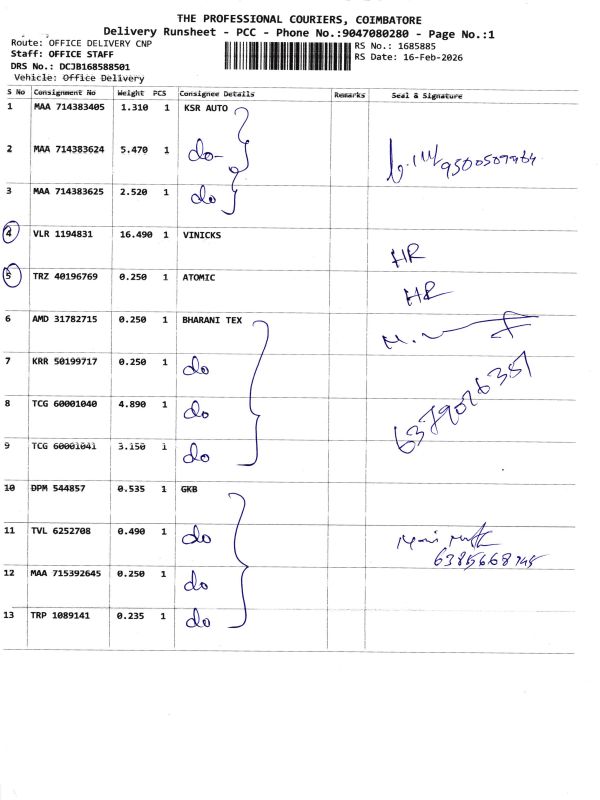 THE PROFESSIONAL COURIERS, COIMBATORE
Delivery Runsheet - PCC - Phone No.:9047080280 - Page No.:1
Route: OFFICE DELIVERY CNP
RS No.: 1685885
Staff: OFFICE STAFF
RS Date: 16-Feb-2026
DRS No.: DCJB168588501
Vehicle: Office Delivery
S No Consignment No Weight PCS Consignee Details Remarks Seal & Signature
1 MAA 714383405 1.310 1 KSR AUTO
2 MAA 714383624 5.470 1 do-
3 MAA 714383625 2.520 1 do
4 VLR 1194831 16.490 1 VINICKS HR
5 TRZ 40196769 0.250 1 ATOMIC HR
6 AMD 31782715 0.250 1 BHARANI TEX
7 KRR 50199717 0.250 1 do
6379026351
8 TCG 60001040 4.890 1 do
9 TCG 60001041 3.150 1 do
10 DPM 544857 0.535 1 GKB
11 TVL 6252708 0.490 1 do
12 MAA 715392645 0.250 1 do
13 TRP 1089141 0.235 1 do